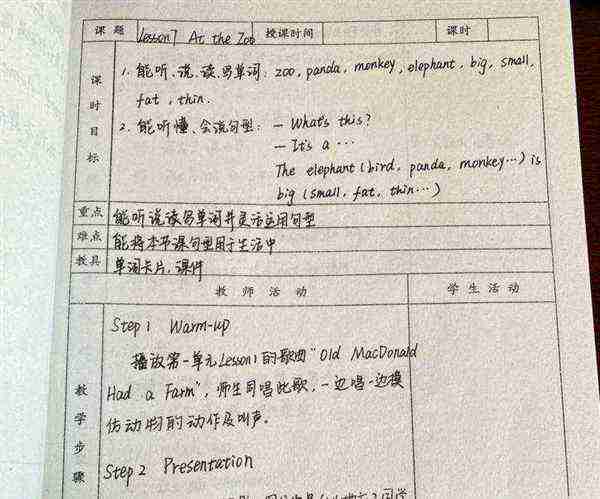 课题 Lesson 7 At the Zoo 授课时间 课时
课时目标
1. 能听、说、读、写单词: zoo, panda, monkey, elephant, big, small,
fat, thin.
2. 能听懂、会说句型: — What's this?
— It's a …
The elephant (bird, panda, monkey…) is
big (small, fat, thin…)
重点 能听说读写单词并灵活运用句型
难点 能将本节课句型用于生活中
教具 单词卡片、课件
教师活动 学生活动
教学步骤
Step 1 Warm-up
播放第一单元Lesson 1的歌曲"Old MacDonald
Had a Farm", 师生同唱此歌, 一边唱一边模
仿动物的动作及叫声。
Step 2 Presentation